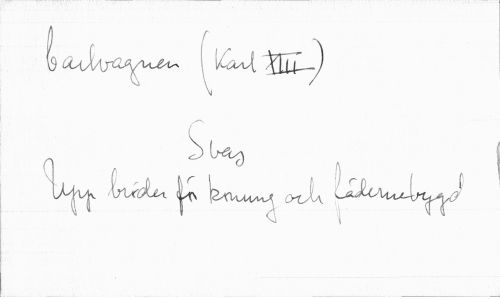 Carlvagnen (Karl XIII)
Sves
Upp bröder för konung och fädernebygd